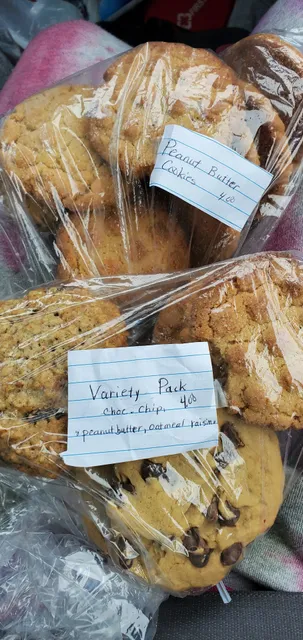 Peanut Butter
Cookies 4.00
Variety Pack
choc. chip, 4.00
peanutbutter, oatmeal raisins